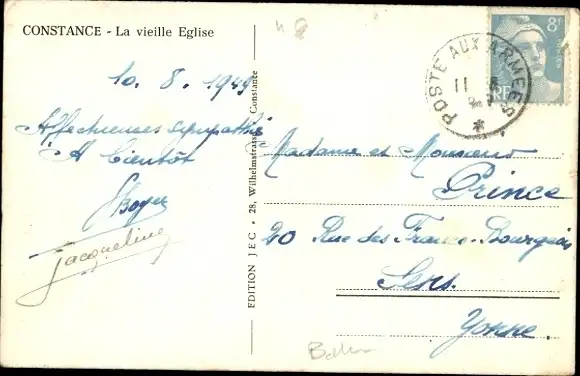 CONSTANCE - La vieille Eglise
10. 8. 1949
Affectueuses sympathies
A bientôt
Boyer
Jacqueline
EDITION JEC • 28, Wilhelmstrasse, Constance
8F
RF
POSTE AUX ARMEES
11 8
Madame et Monsieur
Prince
20 Rue des Francs-Bourgeois
Sens.
Yonne.